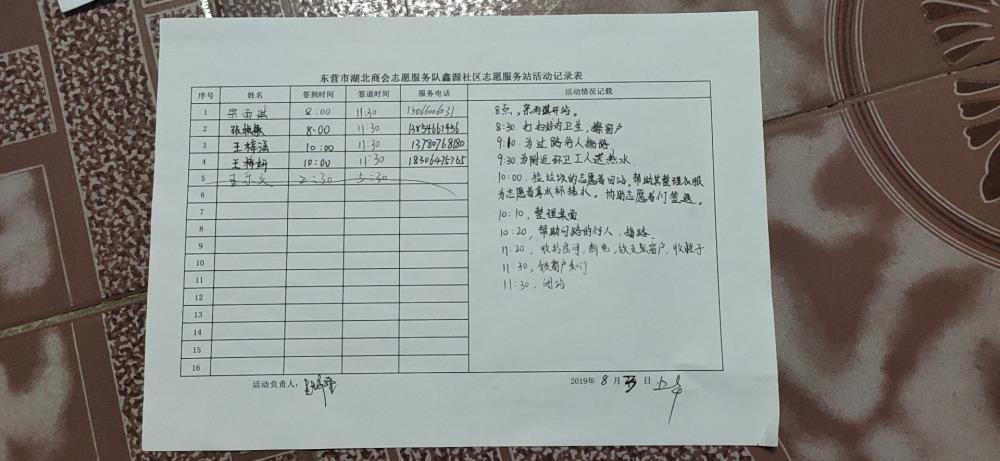 东营市湖北商会志愿服务队鑫源社区志愿服务站活动记录表
序号 姓名 签到时间 签退时间 服务电话 活动情况记载
1 宗雨琪 8:00 11:30
2 张 8:00 11:30 13854667456
3 王梓涵 10:00 11:30 13780768180
4 王梓妍 10:00 11:30 18306475765
5 2:30 5:30
6
7
8
9
10
11
12
13
14
15
16
8点,宗雨琪开站。
8:30 打扫站内卫生,擦窗户
9:10 为过路行人指路
9:30 为附近环卫工人送热水
10:00.捡垃圾的志愿者回站,帮助其整理衣服
为志愿者拿水杯接水。协助志愿者们签退。
10:10,整理桌面
10:20,帮助问路的行人,指路
11:20,收拾房间,断电,放支架窗户,收鞋子
11:30,锁窗户和门
11:30.闭站
活动负责人:
2019年 8 月 23 日 上午